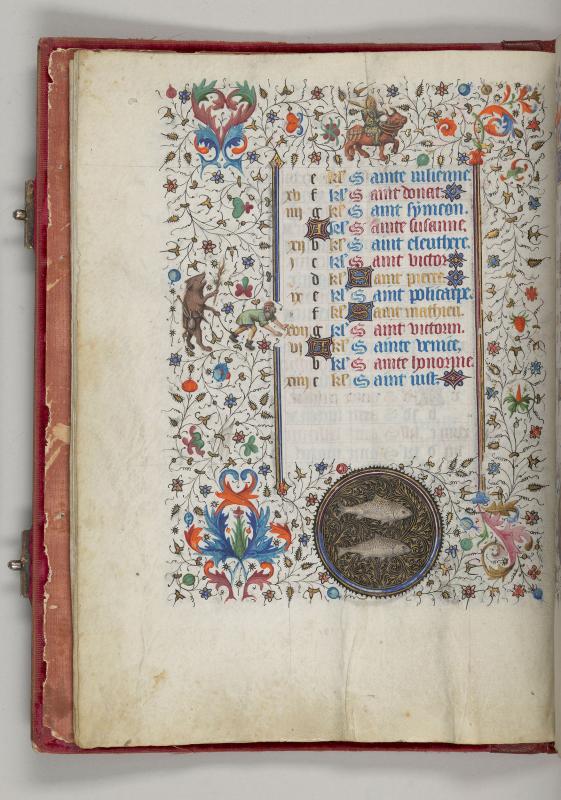 e kl' Sainte iulienne.
xv f kl' Saint donat.
iiii g kl' Saint symeon.
A kl' Sainte susanne.
xii b kl' Saint eleuthere.
i c kl' Saint victor
d kl' Saint pierre.
ix e kl' Saint policarpe.
f kl' Saint mathieu.
xvii g kl' Saint victorin.
vi A kl' Sainte venice.
b kl' Sainte honorine.
xiiii c kl' Saint iust.